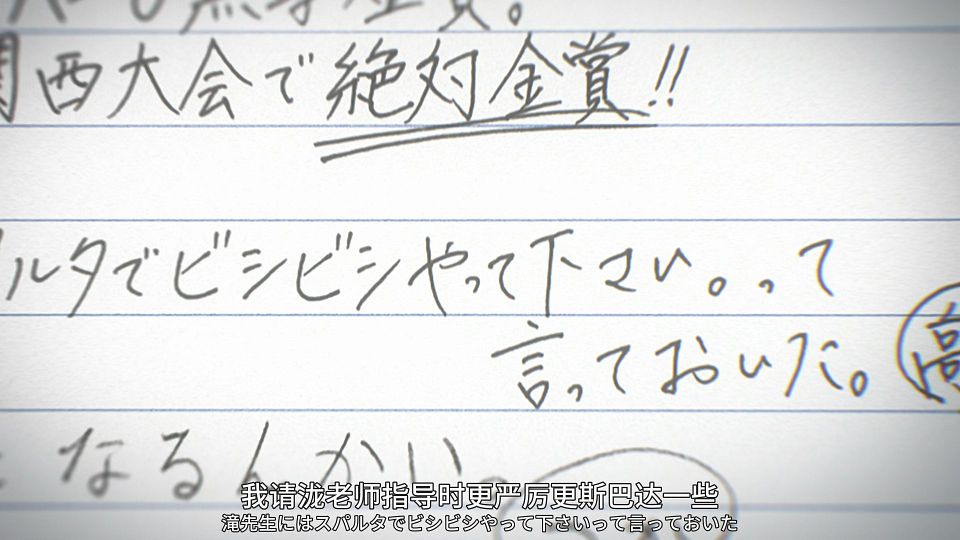 関西大会で絶対金賞!!
ルタでビシビシやって下さい。って
言っておいた。
高
なるんかい
我请泷老师指导时更严厉更斯巴达一些
滝先生にはスパルタでビシビシやって下さいって言っておいた